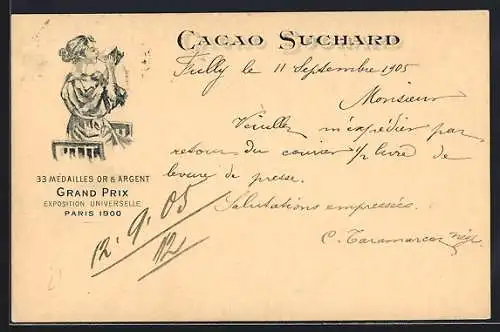 CACAO SUCHARD
Fully le 11 Septembre 1905
Monsieur
Veuillez m'expédier par
retour du courier 1/2 livre de
levure de presse.
Salutations empressées.
C. Taramarcaz nég.
33 MÉDAILLES OR & ARGENT
GRAND PRIX
EXPOSITION UNIVERSELLE
PARIS 1900
12. 9. 05
12